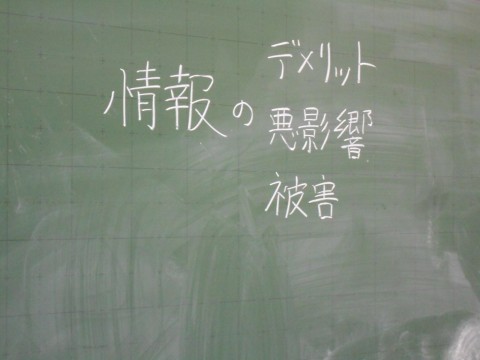 デメリット
情報の悪影響
被害